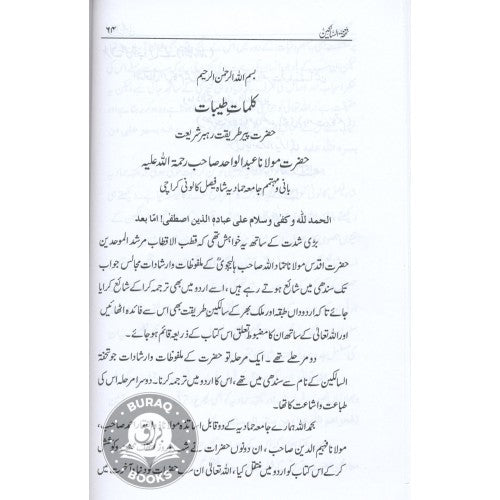 تحفۃ السالکین ۶۴
بسم اللہ الرحمٰن الرحیم
کلماتِ طیبات
حضرت پیر طریقت رہبر شریعت
حضرت مولانا عبد الواحد صاحب رحمۃ اللہ علیہ
بانی و مہتمم جامعہ حمادیہ شاہ فیصل کالونی کراچی
الحمد للّٰہ و کفٰی وسلام علی عبادہ الذین اصطفی! امّا بعد
بڑی شدت کے ساتھ یہ خواہش تھی کہ قطب الاقطاب مرشد الموحدین
حضرت اقدس مولانا حماد اللہ صاحب ہالیجویؒ کے ملفوظات و ارشادات مجالس جواب
تک سندھی میں شائع ہوتے رہے ہیں، اسے اردو میں بھی ترجمہ کرا کے شائع کرایا
جائے تاکہ اردو داں طبقہ اور ملک بھر کے سالکین طریقت بھی اس سے فائدہ اٹھائیں
اور اللہ تعالیٰ کے ساتھ ان کا مضبوط تعلق اس کتاب کے ذریعہ قائم ہو جائے۔
دو مرحلے تھے۔ ایک مرحلہ تو حضرت کے ملفوظات و ارشادات جو تحفۃ
السالکین کے نام سے سندھی میں تھے، اس کا اردو میں ترجمہ کرنا۔ دوسرا مرحلہ اس کی
طباعت و اشاعت کا تھا۔
بحمد اللہ ہمارے جامعہ حمادیہ کے دو قابل اساتذہ مولانا صاحب،
مولانا فہیم الدین صاحب، ان دونوں حضرات نے کو
کتاب کو اردو میں منتقل کیا، اللہ تعالیٰ ان سب حضرات کو دنیا و آخرت میں
BURAQ
براق
BOOKS